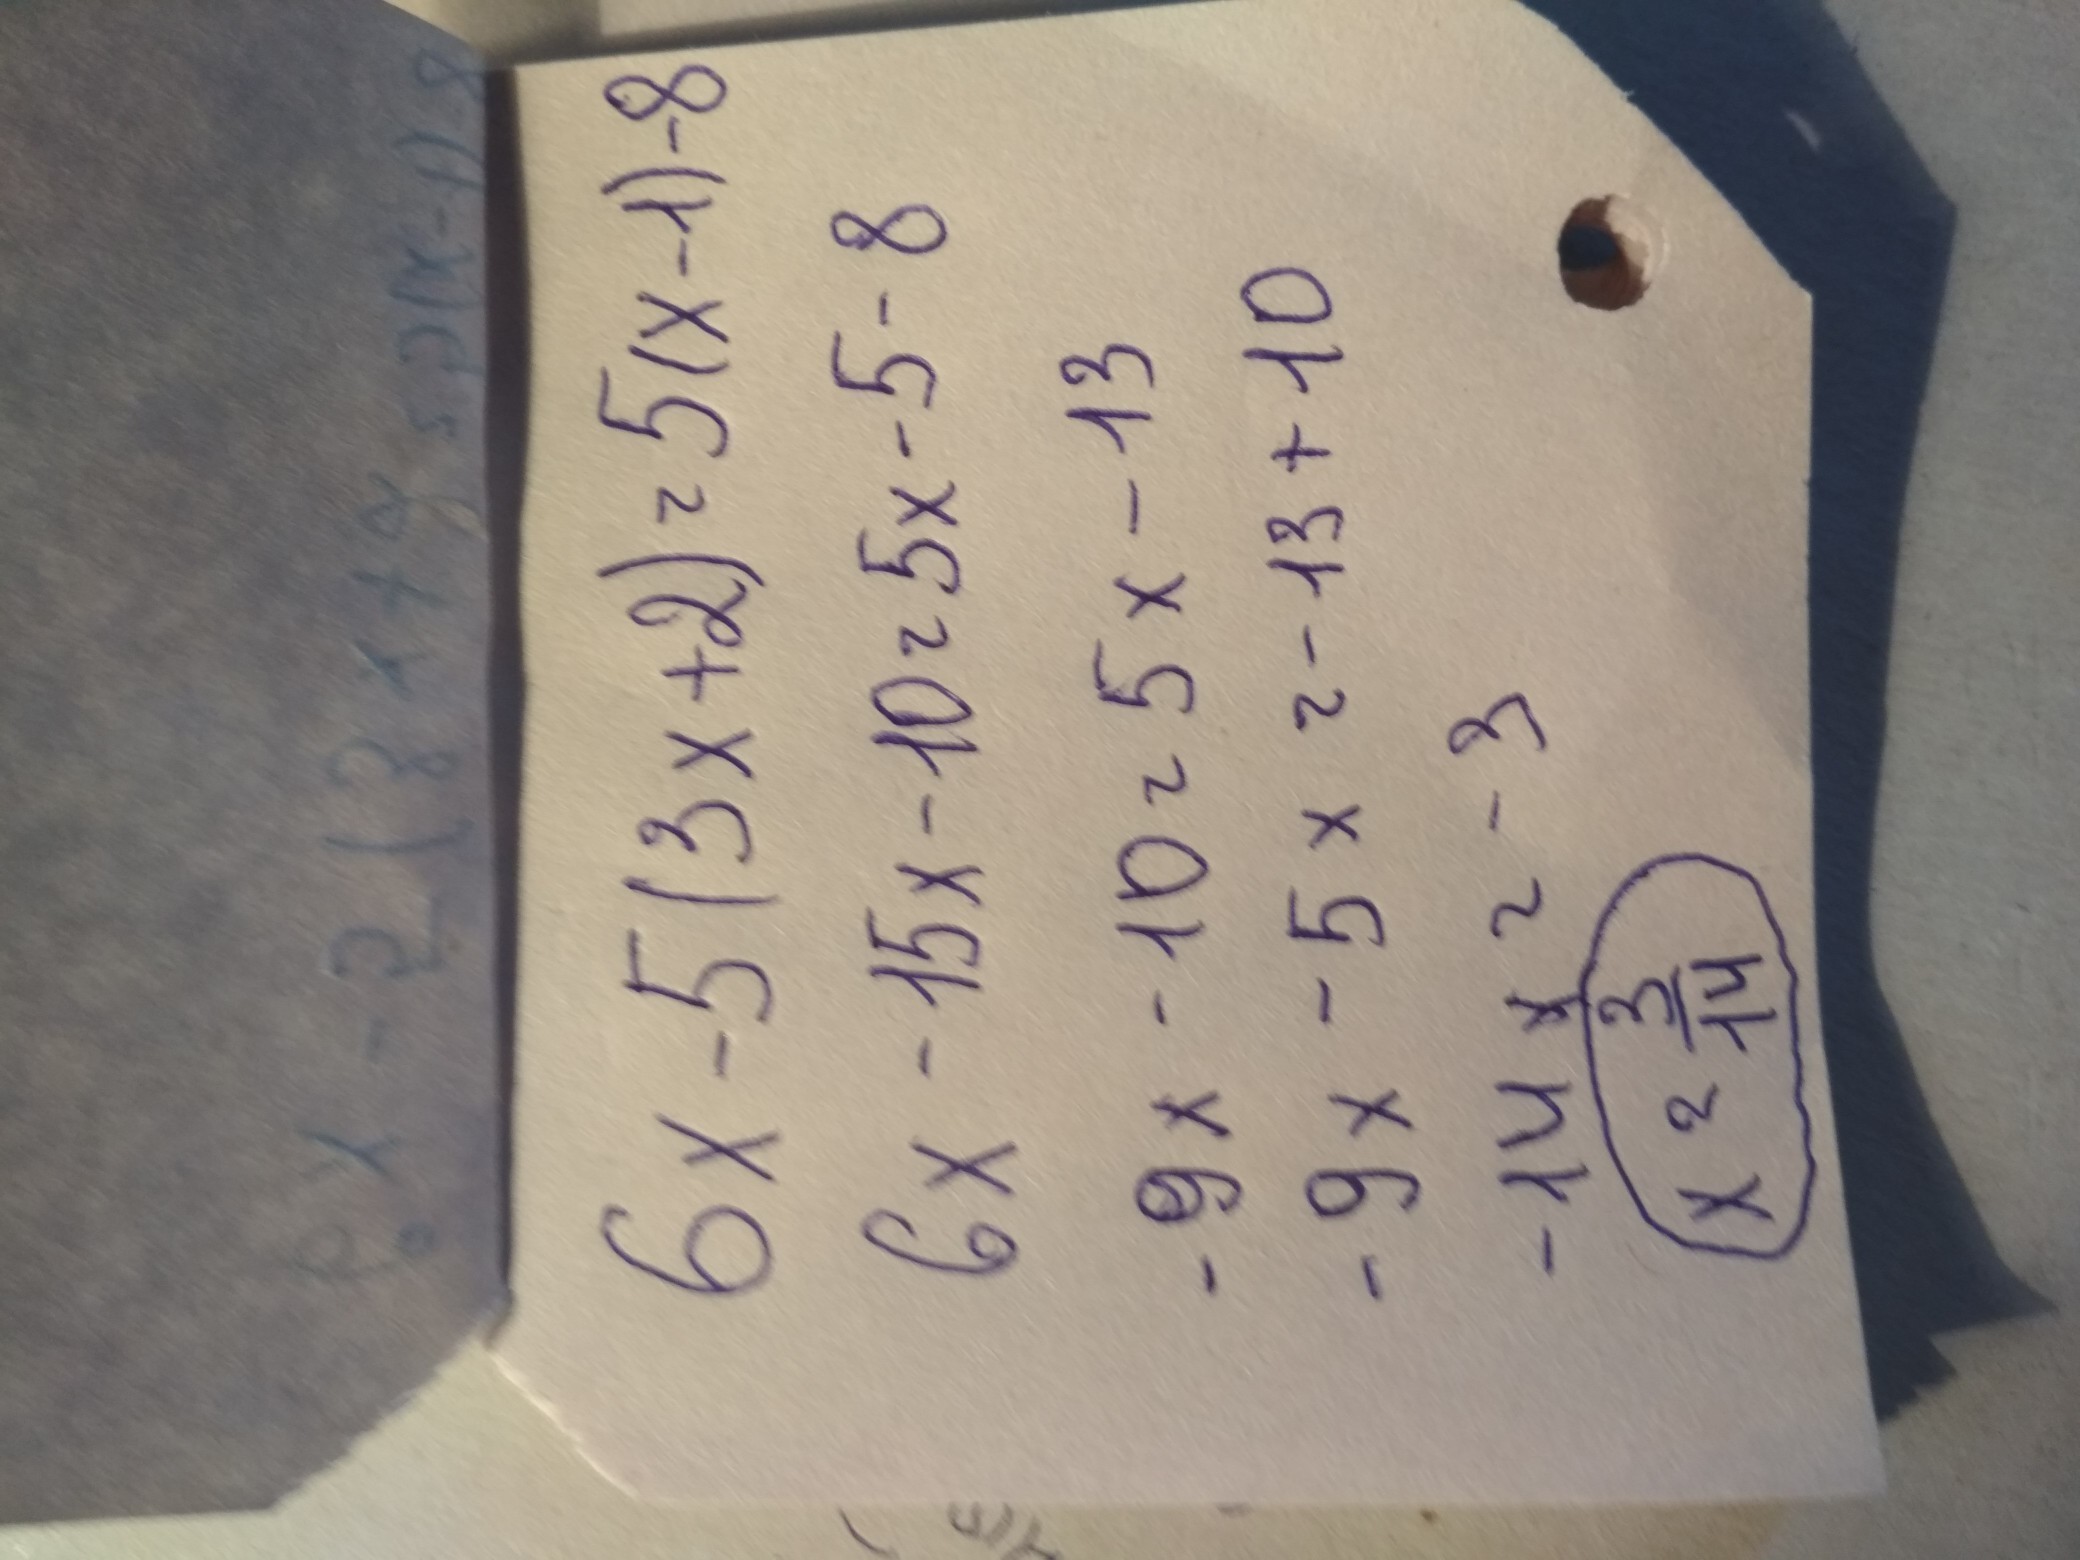 6x - 5(3x+2) = 5(x-1)-8
6x - 15x - 10 = 5x - 5 - 8
-9x - 10 = 5x - 13
-9x - 5x = -13 + 10
-14x = -3
x = 3/14